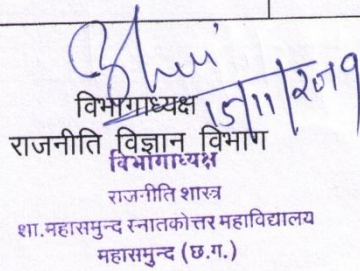 विभागाध्यक्ष 15/11/2019
राजनीति विज्ञान विभाग
विभागाध्यक्ष
राजनीति शास्त्र
शा.महासमुन्द स्नातकोत्तर महाविद्यालय
महासमुन्द (छ.ग.)